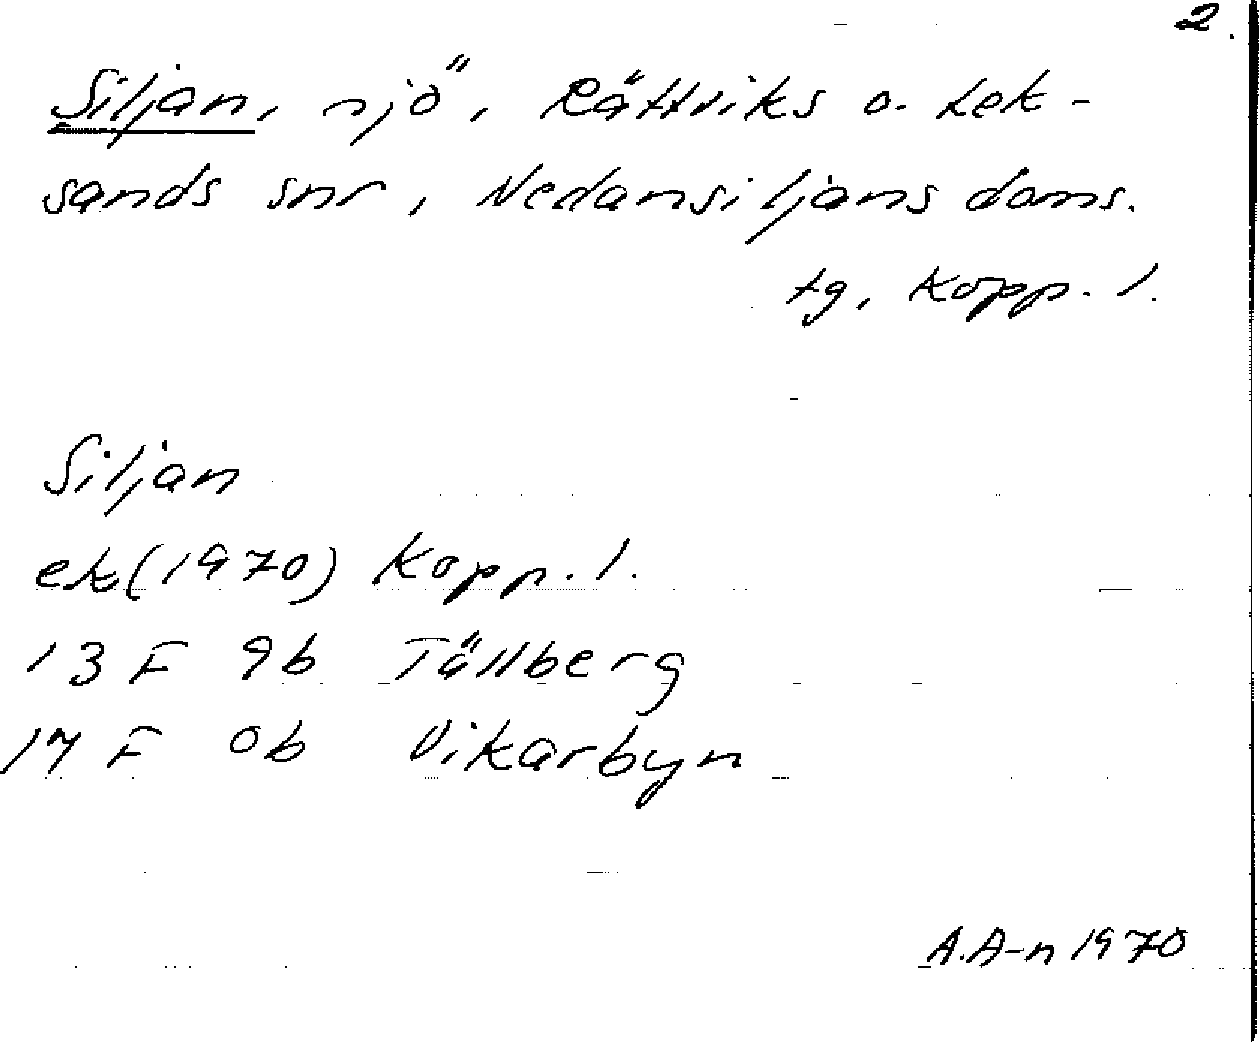 2.
Siljan, sjö, Rättviks o. Lek-
sands snr, Nedansiljans doms.
tg, Kopp. l.
Siljan
ek(1970) Kopp. l.
13 F 9b Tällberg
14 F 0b Vikarbyn
A.A-n 1970